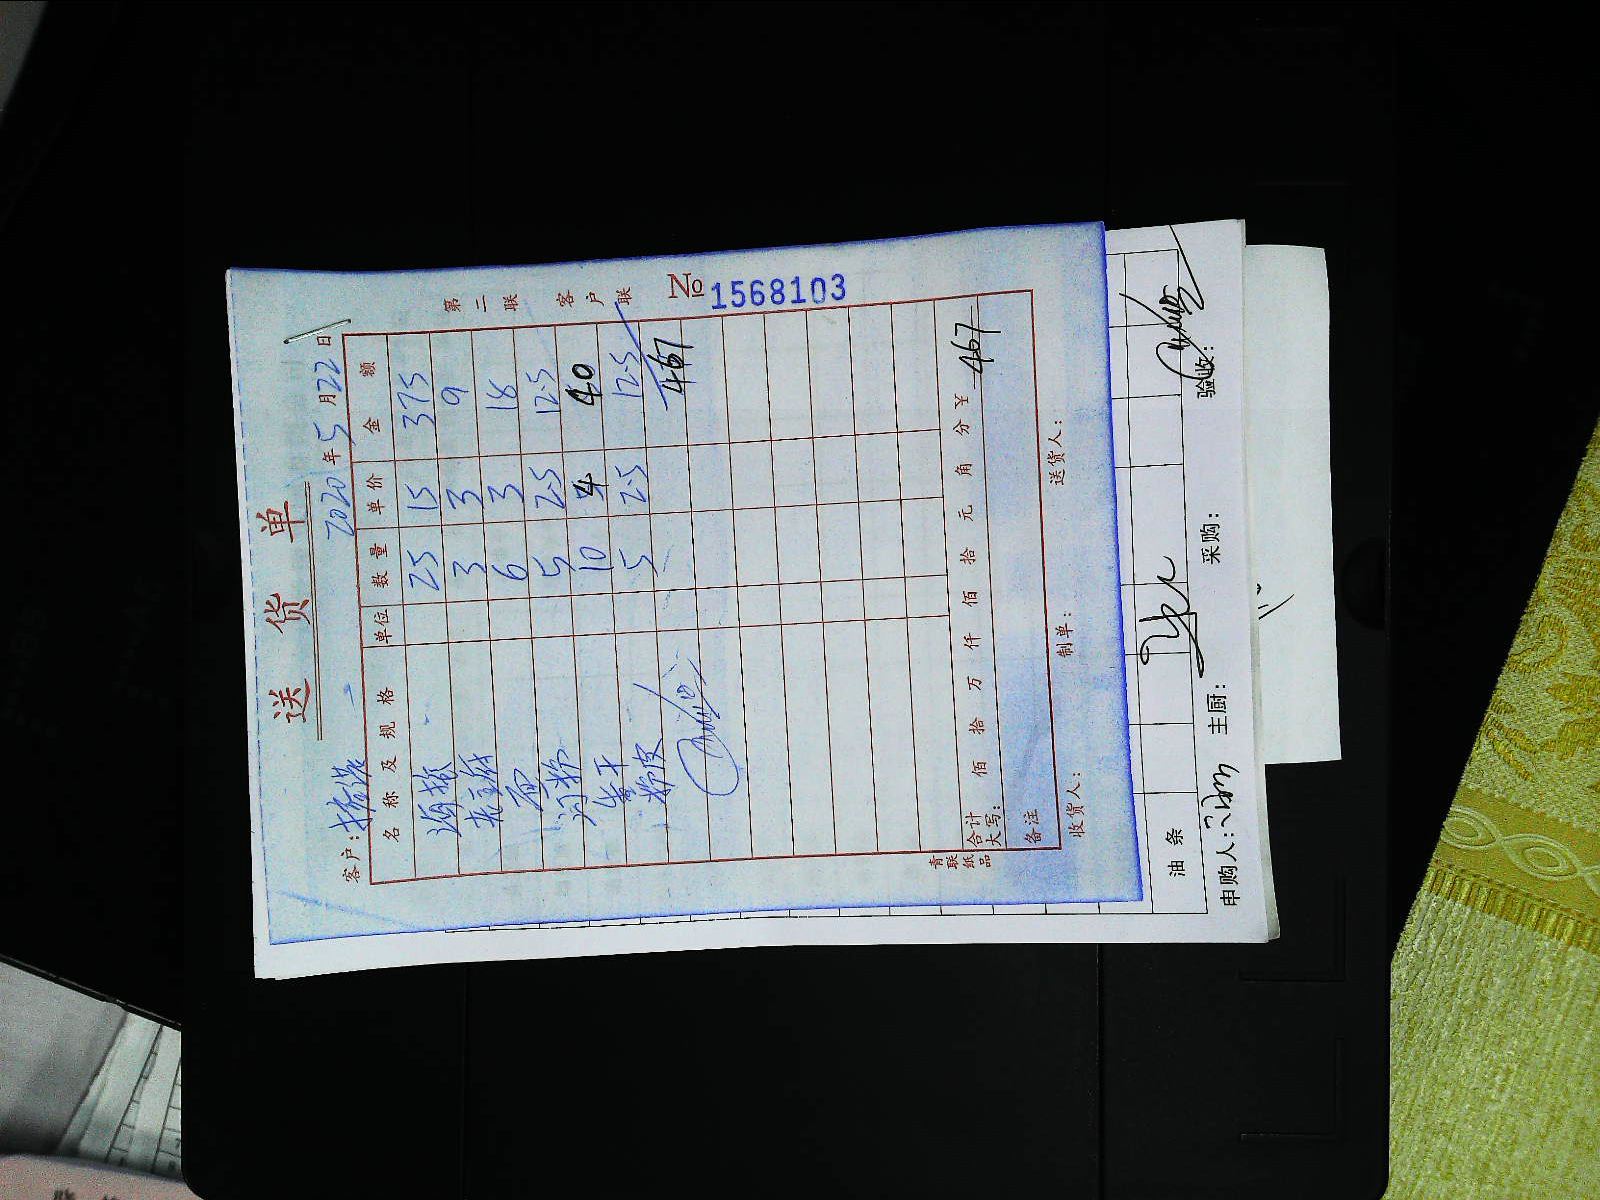 送 货 单
第二联 客户联
№ 1568103
2020年5月22日
客户:
名称及规格 单位 数量 单价 金额
25 15 375
3 3 9
6 3 18
河粉 5 2.5 12.5
10 4 40
粉皮 5 2.5 12.5
467
合计大写: 佰 拾 万 仟 佰 拾 元 角 分 ¥ 467
备注
收货人: 制单: 送货人:
青联纸品
油条
申购人: 主厨: 采购: 验收: